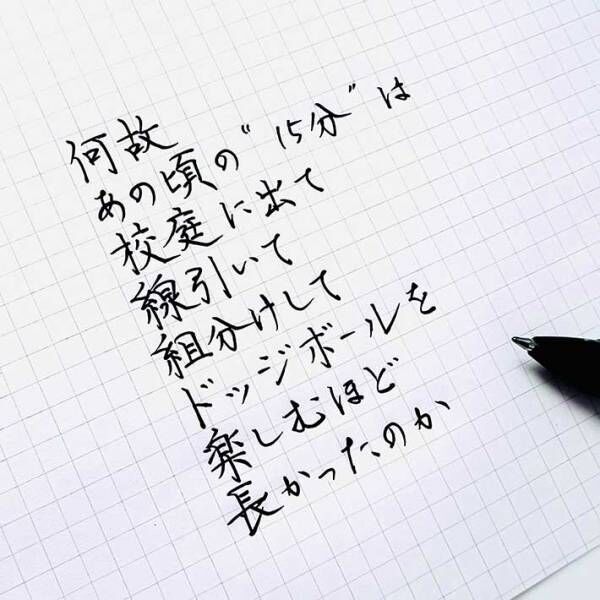 何故
あの頃の“15分”は
校庭に出て
線引いて
組分けして
ドッジボールを
楽しむほど
長かったのか